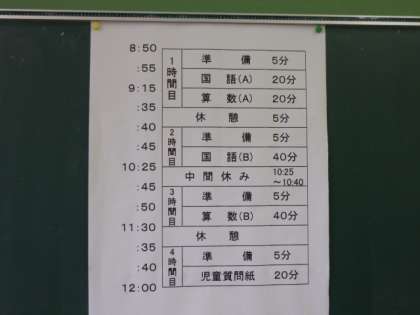 8:50
1時間目 準備 5分
:55
国語(A) 20分
9:15
算数(A) 20分
:35
休憩 5分
:40
2時間目 準備 5分
:45
国語(B) 40分
10:25
中間休み 10:25~10:40
:45
3時間目 準備 5分
:50
算数(B) 40分
11:30
休憩
:35
4時間目 準備 5分
:40
児童質問紙 20分
12:00